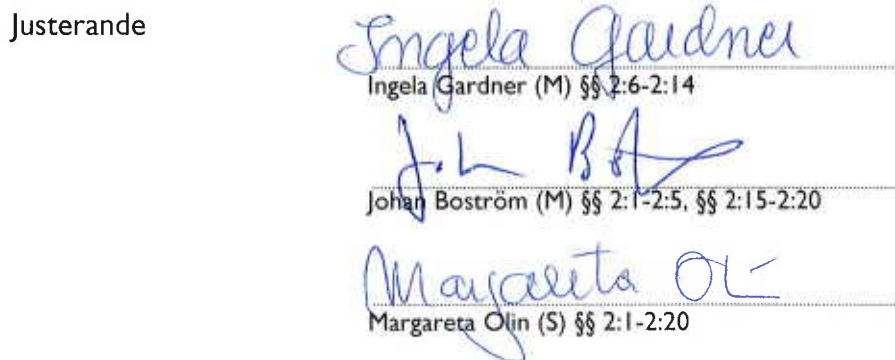 Justerande
Ingela Gardner
Ingela Gardner (M) §§ 2:6-2:14
Johan Bo
Johan Boström (M) §§ 2:1-2:5, §§ 2:15-2:20
Margareta Ol
Margareta Olin (S) §§ 2:1-2:20